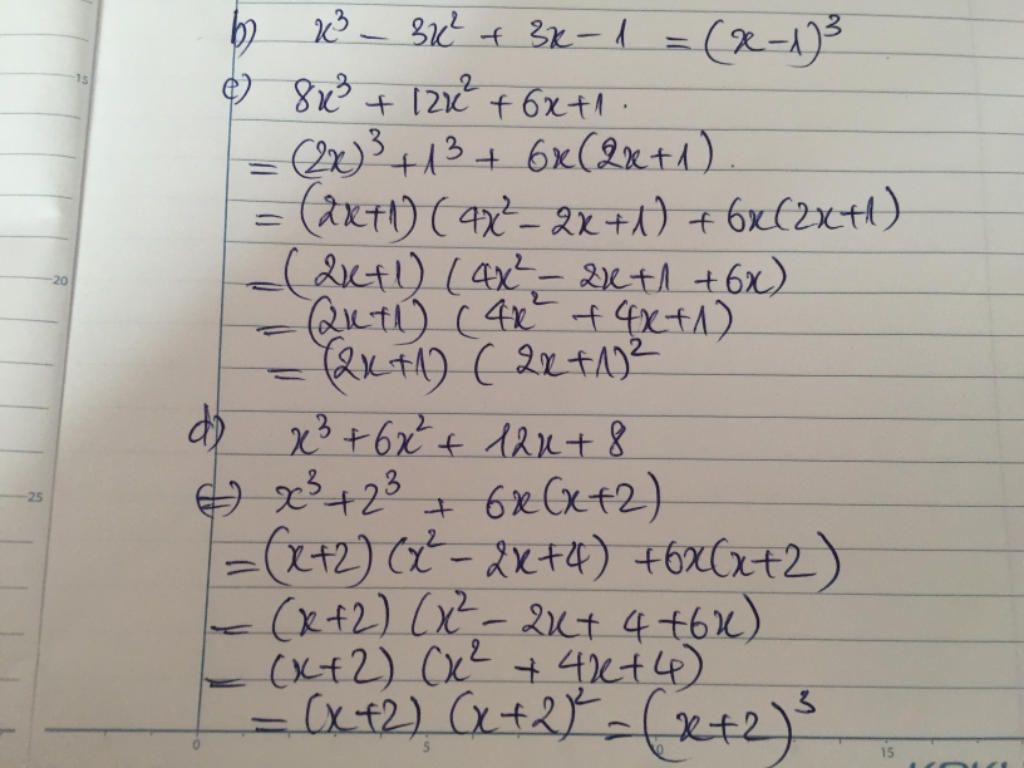 b) x³ - 3x² + 3x - 1 = (x-1)³
c) 8x³ + 12x² + 6x + 1.
= (2x)³ + 1³ + 6x(2x+1).
= (2x+1) (4x² - 2x+1) + 6x(2x+1)
= (2x+1) (4x² - 2x+1 + 6x)
= (2x+1) (4x² + 4x+1)
= (2x+1) (2x+1)²
d) x³ + 6x² + 12x + 8
x³ + 2³ + 6x(x+2)
= (x+2) (x² - 2x+4) + 6x(x+2)
= (x+2) (x² - 2x + 4 + 6x)
= (x+2) (x² + 4x+4)
= (x+2) (x+2)² = (x+2)³
15
20
25
0 5 10 15